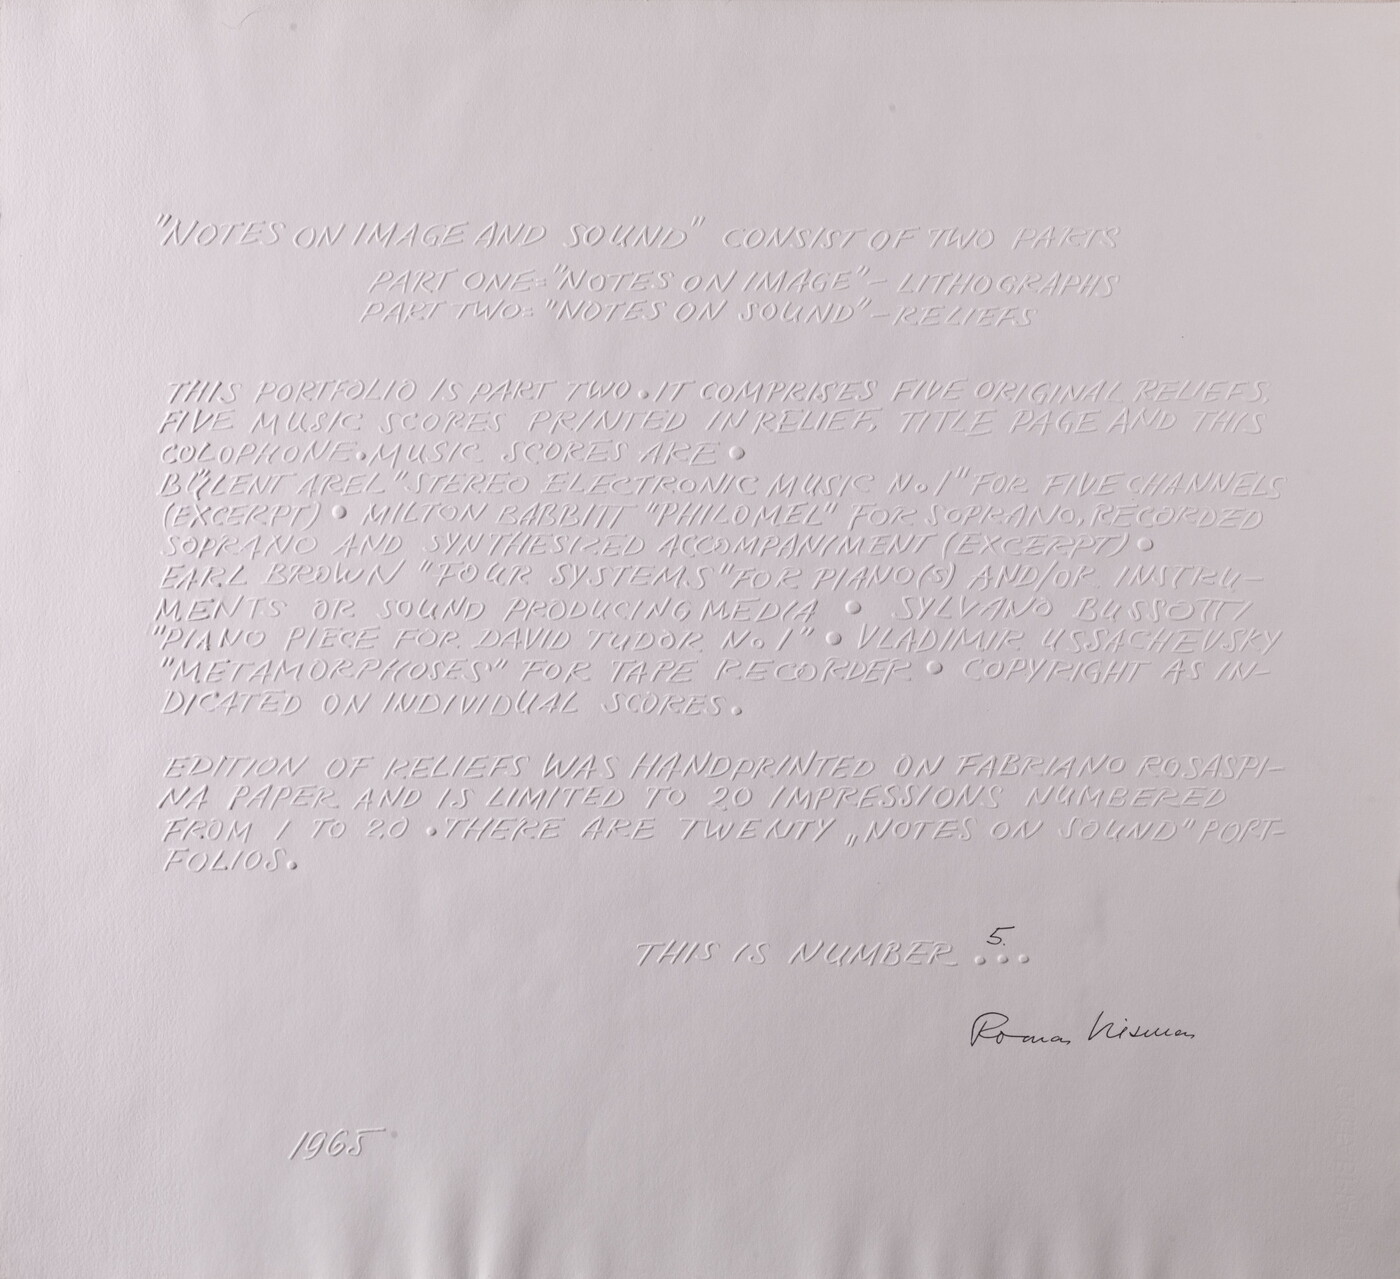 "NOTES ON IMAGE AND SOUND" CONSIST OF TWO PARTS
PART ONE: "NOTES ON IMAGE" – LITHOGRAPHS
PART TWO: "NOTES ON SOUND" – RELIEFS
THIS PORTFOLIO IS PART TWO • IT COMPRISES FIVE ORIGINAL RELIEFS,
FIVE MUSIC SCORES PRINTED IN RELIEF, TITLE PAGE AND THIS
COLOPHONE • MUSIC SCORES ARE •
BÜLENT AREL "STEREO ELECTRONIC MUSIC No.1" FOR FIVE CHANNELS
(EXCERPT) • MILTON BABBITT "PHILOMEL" FOR SOPRANO, RECORDED
SOPRANO AND SYNTHESIZED ACCOMPANIMENT (EXCERPT) •
EARL BROWN "FOUR SYSTEMS" FOR PIANO(S) AND/OR INSTRU–
MENTS OR SOUND PRODUCING MEDIA • SYLVANO BUSSOTTI
"PIANO PIECE FOR DAVID TUDOR No.1" • VLADIMIR USSACHEVSKY
"METAMORPHOSES" FOR TAPE RECORDER • COPYRIGHT AS IN–
DICATED ON INDIVIDUAL SCORES.
EDITION OF RELIEFS WAS HANDPRINTED ON FABRIANO ROSASPI–
NA PAPER AND IS LIMITED TO 20 IMPRESSIONS NUMBERED
FROM 1 TO 20 • THERE ARE TWENTY „NOTES ON SOUND" PORT–
FOLIOS.
THIS IS NUMBER 5. ...
Roman
1965